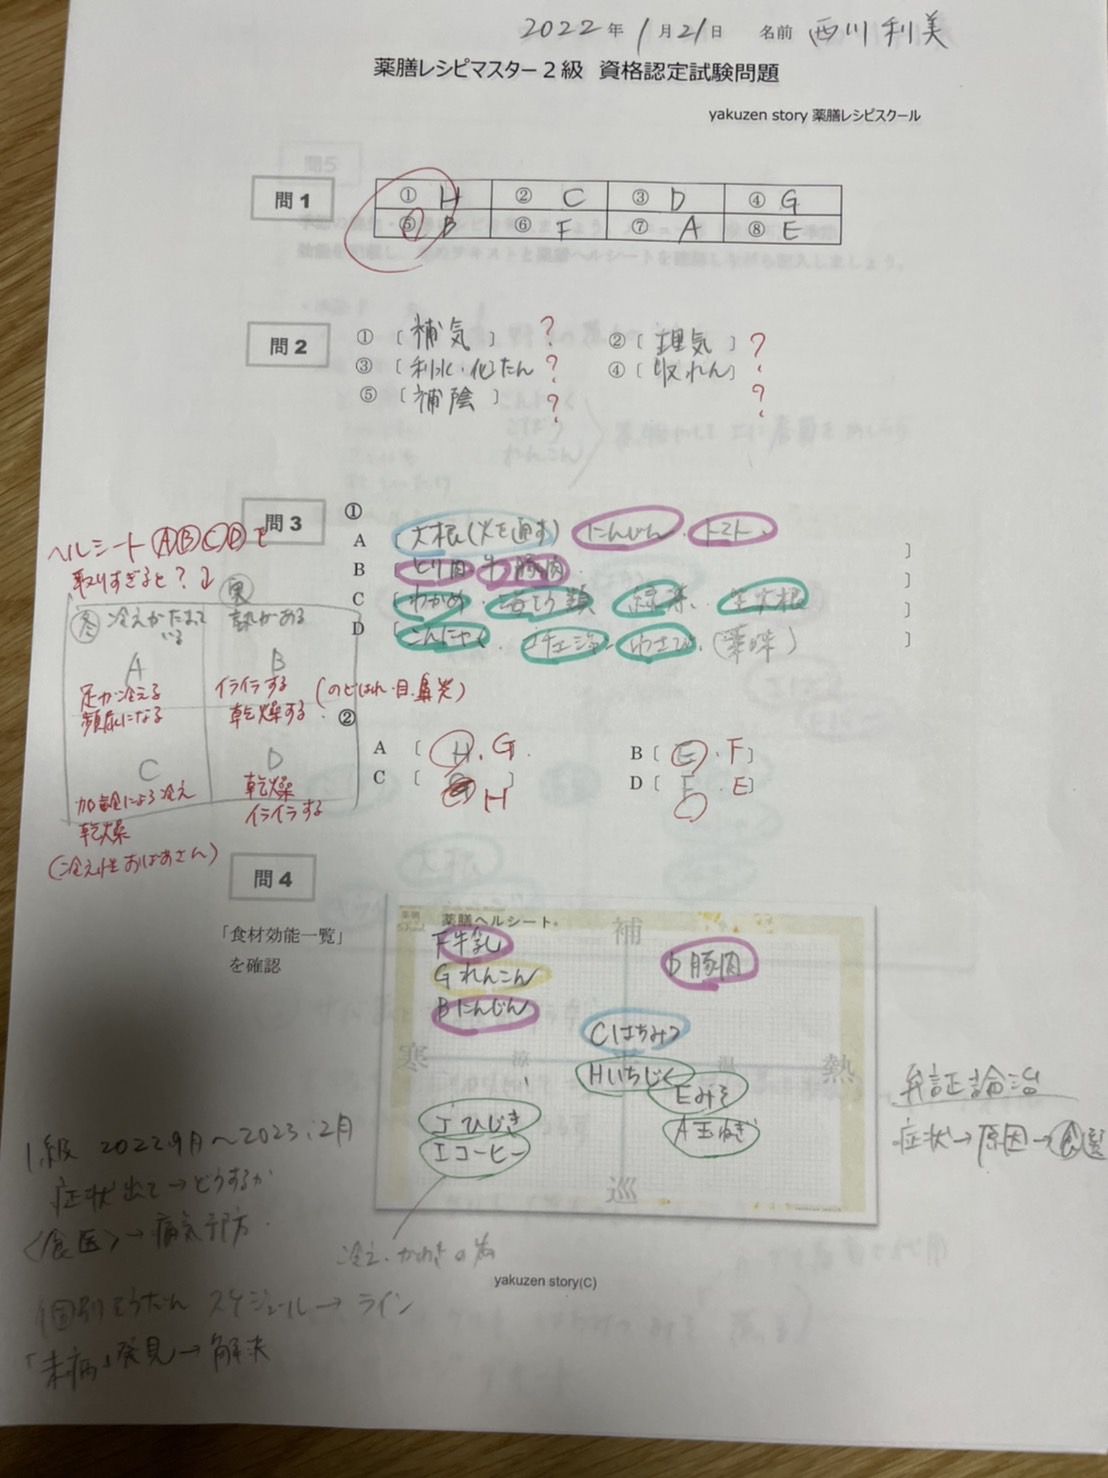 2022年 1月21日 名前 西川利美
薬膳レシピマスター2級 資格認定試験問題
yakuzen story 薬膳レシピスクール
問1
① H ② C ③ D ④ G
⑤ B ⑥ F ⑦ A ⑧ E
問2
① 〔補気〕 ? ② 〔理気〕 ?
③ 〔利水・化たん ? ④ 〔収れん〕 ?
⑤ 〔補陰〕 ? ?
問3
①
A 〔大根(火を通す) にんじん、トマト、 〕
B 〔とり肉 牛 豚肉 〕
C 〔わかめ、 海そう類 緑茶、生大根 〕
D 〔こんにゃく、 わさび、(薬味) 〕
ヘルシート ⒶⒷⒸⒹで
取りすぎると?↓
冷えがたまって
いる
実
熱がある
A
足が冷える
頻尿になる
B
イライラする (のどはれ・目・鼻炎)
乾燥する
C
加齢による冷え
乾燥
(冷え性おばあさん)
D
乾燥
イライラする
②
A 〔 H、G B〔 E・F〕
C 〔 H 〕 D〔 F ・E〕
問4
「食材効能一覧」
を確認
薬膳ヘルシート
補
F牛乳
D 豚肉
Gれんこん
Bにんじん
Cはちみつ
寒 涼 温 熱
Hいちじく
Eみそ
J ひじき
A玉ねぎ
I コーヒー
巡
弁証論治
症状→原因→
1級 2022.9月〜2023.2月
症状出て→どうするか
〈食医〉→病気予防
冷え、かわきの
yakuzen story(C)
個別そうだん スケジュール→ライン
「未病」発見→解決